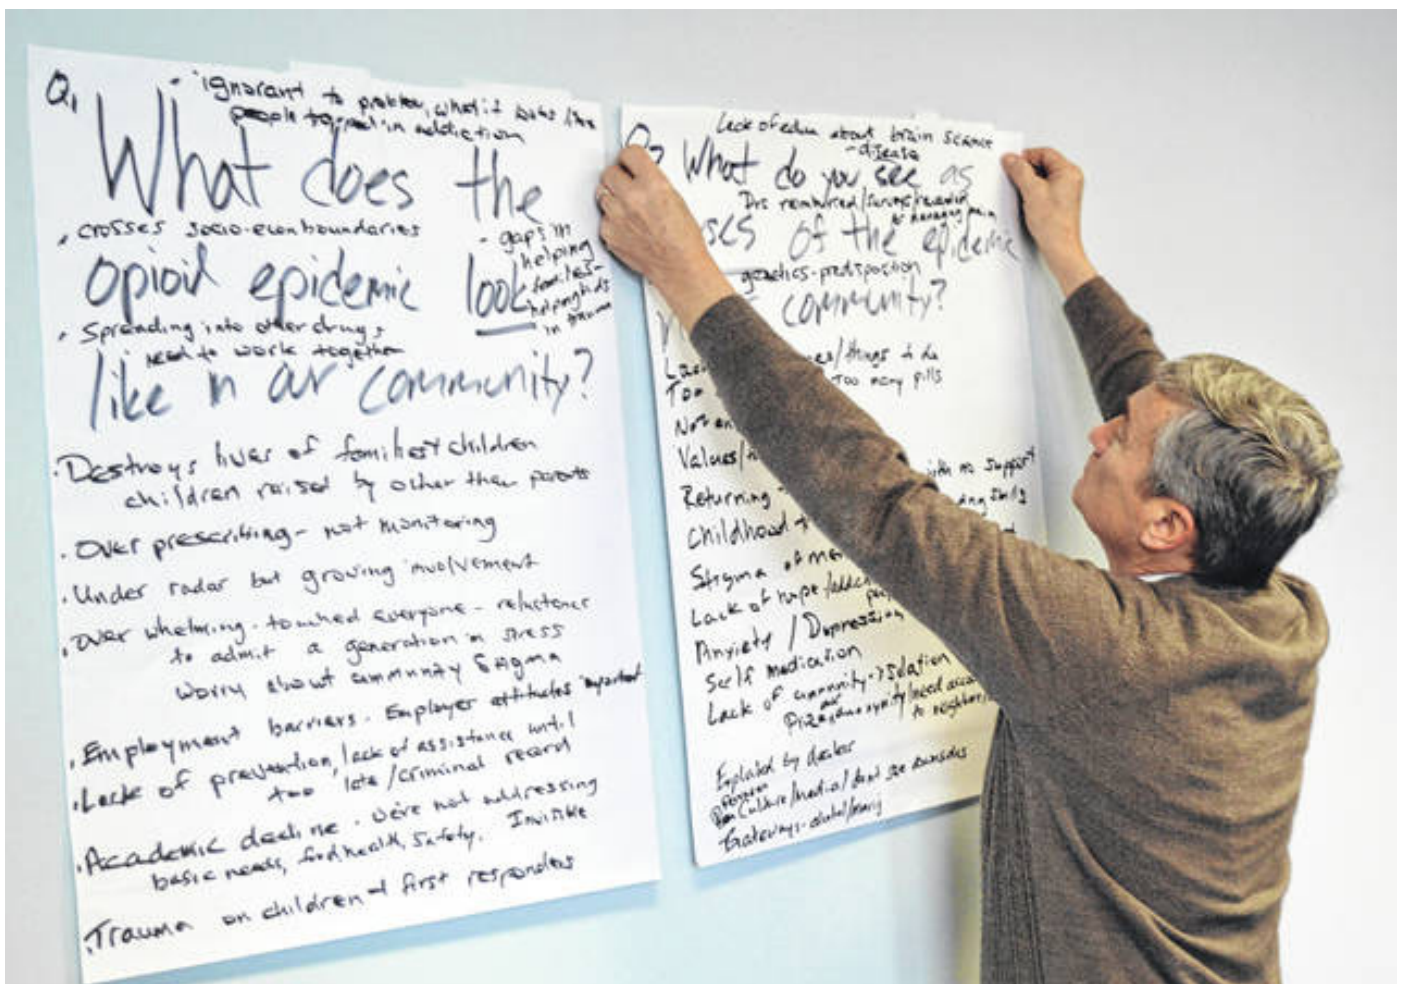 Q1
· ignorant to problem, what it looks like
people trapped in addiction
What does the
· crosses socio-econ boundaries
- gaps in
helping
families-
helping kids
in trauma
opioid epidemic look
· Spreading into other drugs
need to work together
like in our community?
· Destroys lives of families + children
children raised by other then parents
· Over prescribing - not monitoring
· Under radar but growing involvement
· Over whelming - touched everyone - reluctance
to admit a generation in stress
worry about community stigma
· Employment barriers. Employer attitudes important
· Lack of prevention, lack of assistance until
too late / criminal record
· Academic decline. We're not addressing
basic needs, food, health, safety. Invisible
· Trauma on children + first responders
Lack of educ about brain science
- disease
What do you see as
Drs reimbursed/surveys/
to managing pain
of the epidemic
genetics - predisposition
community?
/things to do
Too many pills
Values/
Returning - with no support
Childhood
Stigma of
Lack of hope /
Anxiety / Depression
Self medication
Lack of community - isolation
anonymity/need
to neighbors
Exploited by dealer
Culture/Media/
Gateways - alcohol/marij